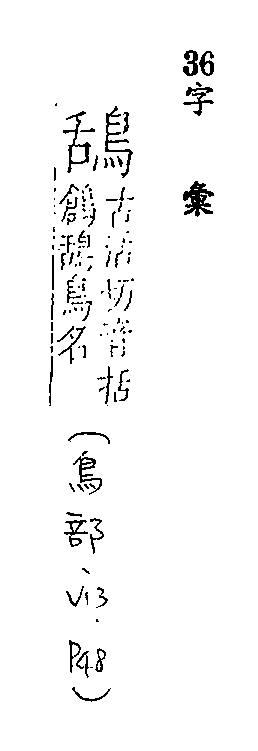 36字彙
鴰
古活切音括
鶬鴰鳥名
(鳥部、V13.P48)